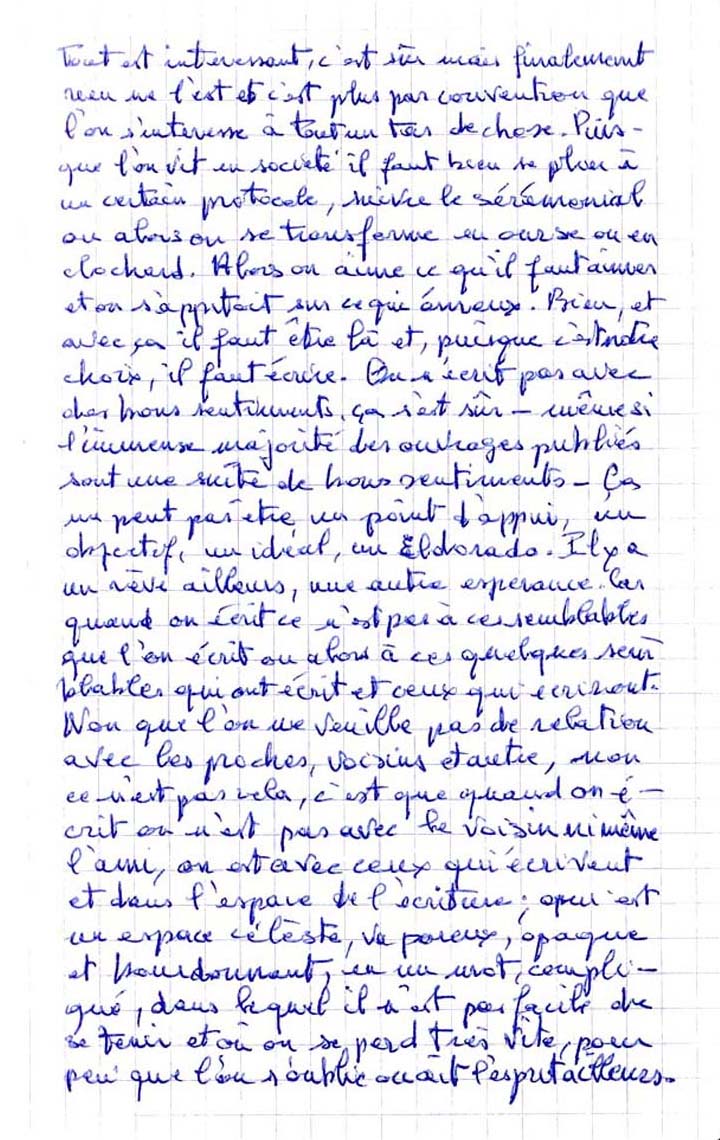 Tout est interessant, c'est sûr mais finalement
rien ne l'est et c'est plus par convention que
l'on s'interesse à tout un tas de chose. Puis-
que l'on vit en société il faut bien se plier à
un certain protocole, suivre le sérémonial
ou alors on se transforme en ourse ou en
clochard. Alors on aime ce qu'il faut aimer
et on s'appitoit sur ce qui émeux. Bien, et
avec ça il faut être là et, puisque c'est notre
choix, il faut écrire. On n'écrit pas avec
des bons sentiments, ça s'est sûr – même si
l'immense majorité des ouvrages publiés
sont une suite de bons sentiments – Ça
ne peut pas être un point d'appui, un
objectif, un idéal, un Eldorado. Il y a
un rêve ailleurs, une autre esperance. Car
quand on écrit ce n'est pas à ces semblables
que l'on écrit ou alors à ces quelques sem
blables qui ont écrit et ceux qui écriront.
Non que l'on ne veuille pas de relation
avec les proches, voisins et autre, non
ce n'est pas cela, c'est que quand on é-
crit on n'est pas avec le voisin ni même
l'ami, on est avec ceux qui écrivent
et dans l'espace de l'écriture ; qui est
un espace céleste, vaporeux, opaque
et bourdonnant, en un mot, compli-
qué, dans lequel il n'est pas facile de
se tenir et où on se perd très vite, pour
peu que l'on s'oublie ou ait l'esprit ailleurs.